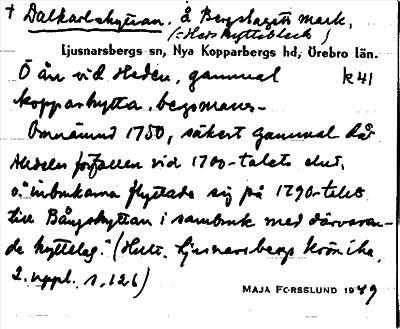 + Dalkarlshyttan. å Bergslagets mark,
(= Herr hyttebleck)
Ljusnarsbergs sn, Nya Kopparbergs hd, Örebro län.
Ö ån vid Heden, gammal k 41
kopparhytta, bergsmans-
Omnämnd 1750, säkert gammal då.
Andelen förfallen vid 1700-talets slut,
o. "inbrukarna flyttade sig på 1790-talet
till Bångshyttan i sambruk med därvaran-
de hyttelag." (Hult. Ljusnarsbergs krönika,
2. uppl. s. 126)
MAJA FORSSLUND 1949